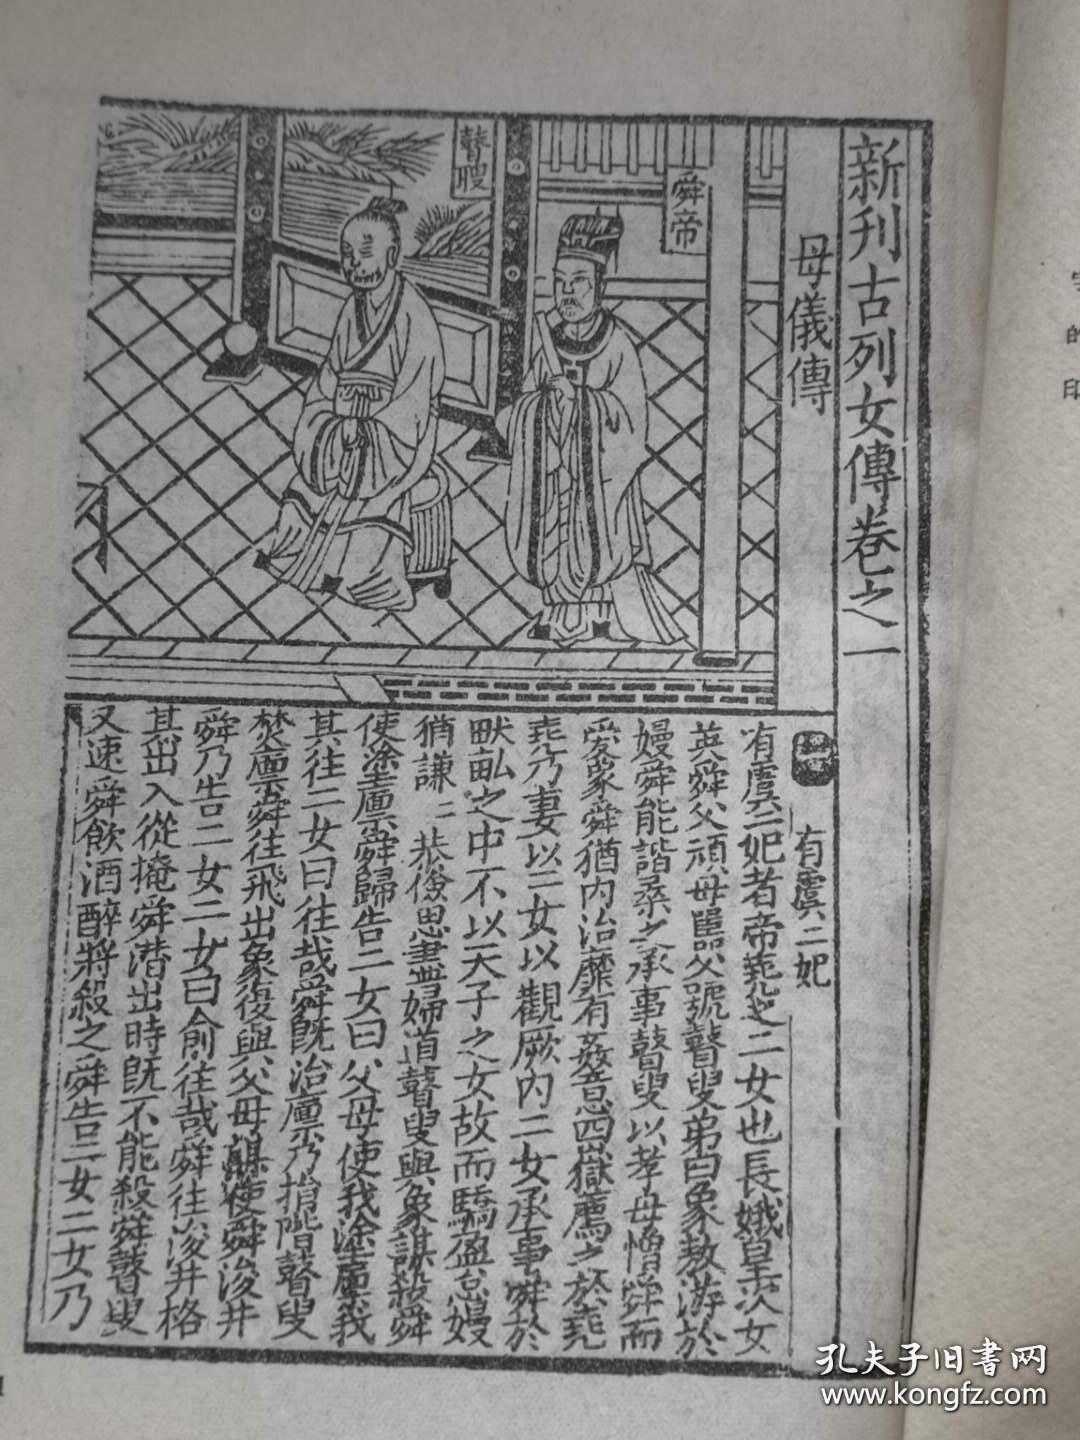 新刋古列女傳卷之一
母儀傳
舜帝
瞽瞍
一
有虞二妃
有虞二妃者帝堯之二女也長娥皇次女
英舜父頑母嚚父號瞽叟弟曰象敖游於
嫚舜能諧柔之承事瞽叟以孝母憎舜而
愛象舜猶内治靡有姦意四嶽薦之於堯
堯乃妻以二女以觀厥内二女承事舜於
畎畝之中不以天子之女故而驕盈怠嫚
猶謙二恭儉思盡婦道瞽叟與象謀殺舜
使塗廪舜歸告二女曰父母使我塗廪我
其往二女曰往哉舜既治廪乃捐階瞽叟
焚廪舜往飛出象復與父母謀使舜浚井
舜乃告二女二女曰俞往哉舜往浚井格
其出入從掩舜潜出時既不能殺舜瞽叟
又速舜飲酒醉將殺之舜告二女二女乃
的
印
孔夫子旧書网
www.kongfz.com